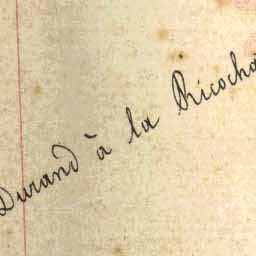 Durand à la Ricocha